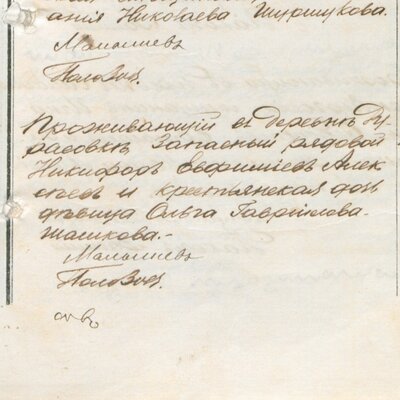 анiя Николаева Шуршукова.
Малышевъ
Половов.
Проживающiй въ деревнѣ Ду-
расовкѣ Запасный рядовой
Никифоръ Евфимiевъ Алек-
сѣевъ и крестьянская дочь
дѣвица Ольга Гаврiилова
Малышевъ
Половов.